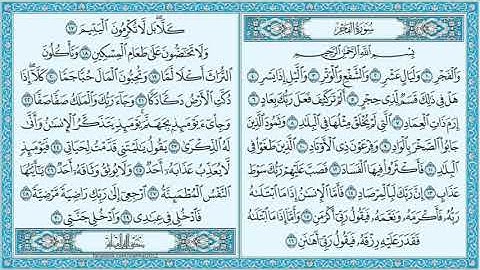 سُورَةُ الْفَجْرِ
بِسْمِ ٱللَّهِ ٱلرَّحْمَٰنِ ٱلرَّحِيمِ
وَٱلْفَجْرِ ١ وَلَيَالٍ عَشْرٍ ٢ وَٱلشَّفْعِ وَٱلْوَتْرِ ٣ وَٱلَّيْلِ إِذَا يَسْرِ ٤
هَلْ فِي ذَٰلِكَ قَسَمٌ لِّذِي حِجْرٍ ٥ أَلَمْ تَرَ كَيْفَ فَعَلَ رَبُّكَ بِعَادٍ ٦
إِرَمَ ذَاتِ ٱلْعِمَادِ ٧ ٱلَّتِي لَمْ يُخْلَقْ مِثْلُهَا فِي ٱلْبِلَٰدِ ٨ وَثَمُودَ ٱلَّذِينَ
جَابُوا۟ ٱلصَّخْرَ بِٱلْوَادِ ٩ وَفِرْعَوْنَ ذِي ٱلْأَوْتَادِ ١٠ ٱلَّذِينَ طَغَوْا۟ فِي
ٱلْبِلَٰدِ ١١ فَأَكْثَرُوا۟ فِيهَا ٱلْفَسَادَ ١٢ فَصَبَّ عَلَيْهِمْ رَبُّكَ سَوْطَ
عَذَابٍ ١٣ إِنَّ رَبَّكَ لَبِٱلْمِرْصَادِ ١٤ فَأَمَّا ٱلْإِنسَٰنُ إِذَا مَا ٱبْتَلَىٰهُ
رَبُّهُۥ فَأَكْرَمَهُۥ وَنَعَّمَهُۥ فَيَقُولُ رَبِّي أَكْرَمَنِ ١٥ وَأَمَّا إِذَا مَا ٱبْتَلَىٰهُ
فَقَدَرَ عَلَيْهِ رِزْقَهُۥ فَيَقُولُ رَبِّي أَهَٰنَنِ ١٦
كَلَّا بَل لَّا تُكْرِمُونَ ٱلْيَتِيمَ ١٧
وَلَا تَحَٰٓضُّونَ عَلَىٰ طَعَامِ ٱلْمِسْكِينِ ١٨ وَتَأْكُلُونَ
ٱلتُّرَاثَ أَكْلًا لَّمًّا ١٩ وَتُحِبُّونَ ٱلْمَالَ حُبًّا جَمًّا ٢٠ كَلَّا إِذَا
دُكَّتِ ٱلْأَرْضُ دَكًّا دَكًّا ٢١ وَجَآءَ رَبُّكَ وَٱلْمَلَكُ صَفًّا صَفًّا ٢٢
وَجِا۟يٓءَ يَوْمَئِذٍۭ بِجَهَنَّمَ يَوْمَئِذٍ يَتَذَكَّرُ ٱلْإِنسَٰنُ وَأَنَّىٰ
لَهُ ٱلذِّكْرَىٰ ٢٣ يَقُولُ يَٰلَيْتَنِي قَدَّمْتُ لِحَيَاتِي ٢٤ فَيَوْمَئِذٍ
لَّا يُعَذِّبُ عَذَابَهُۥٓ أَحَدٌ ٢٥ وَلَا يُوثِقُ وَثَاقَهُۥٓ أَحَدٌ ٢٦ يَٰٓأَيَّتُهَا
ٱلنَّفْسُ ٱلْمُطْمَئِنَّةُ ٢٧ ٱرْجِعِيٓ إِلَىٰ رَبِّكِ رَاضِيَةً مَّرْضِيَّةً ٢٨
فَٱدْخُلِي فِي عِبَٰدِي ٢٩ وَٱدْخُلِي جَنَّتِي ٣٠